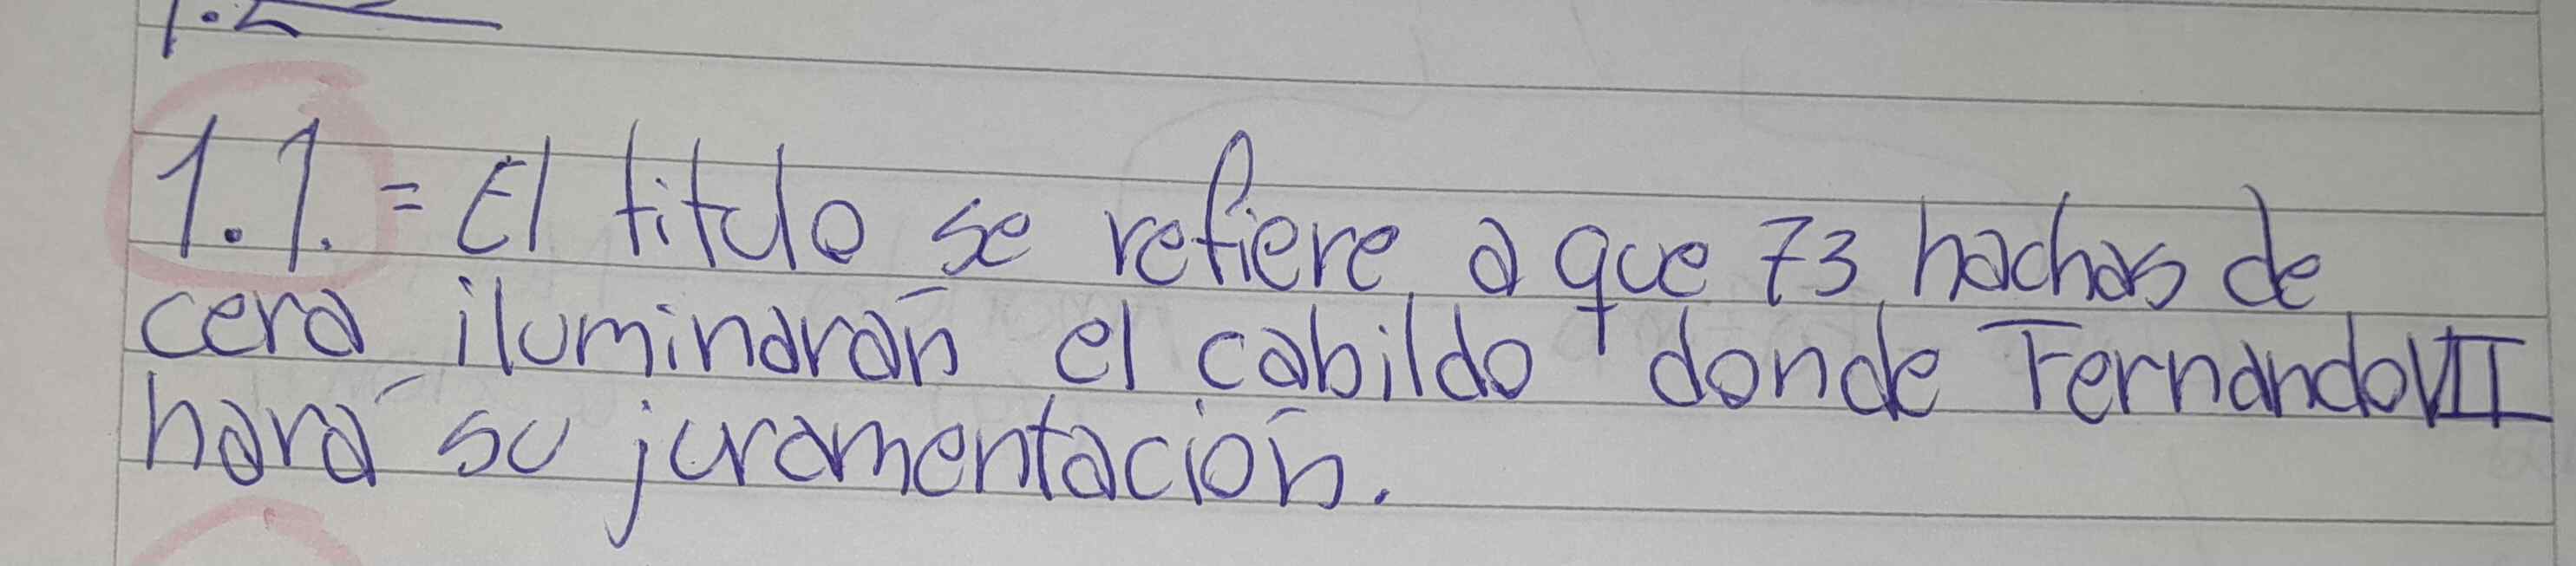 1.1. = El titulo se refiere a que 73 hachas de
cera iluminarán el cabildo donde Fernando VII
hará su juramentación.